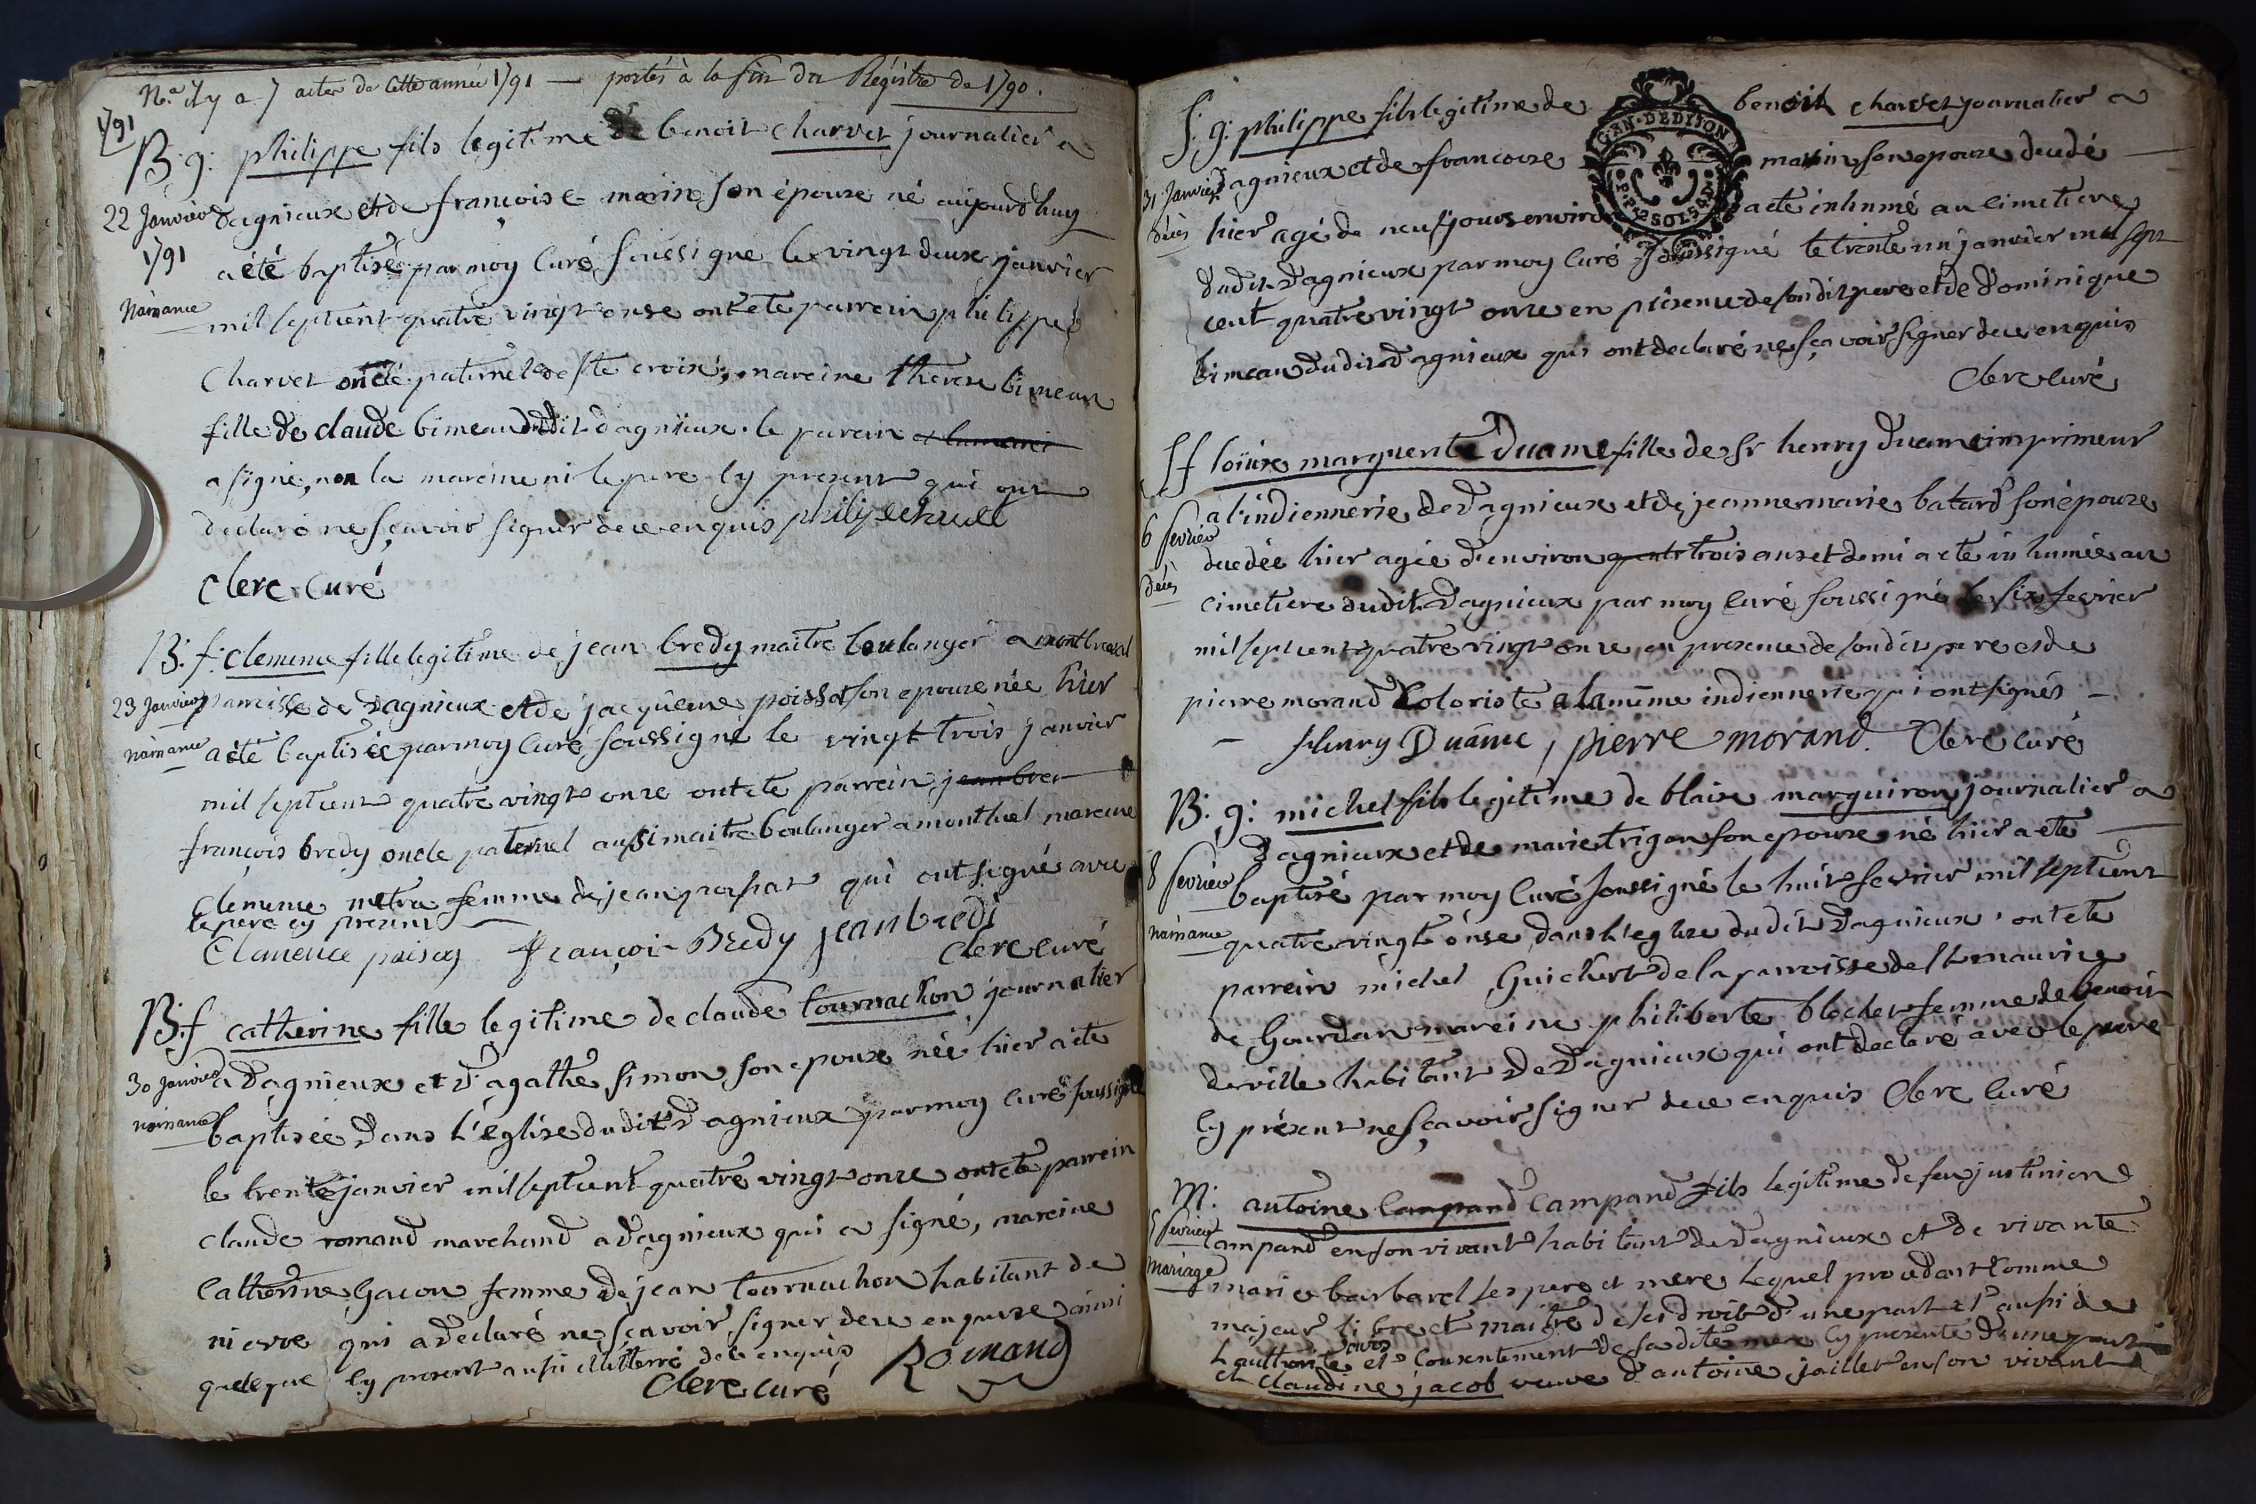 N.a il y a 7 actes de cette année 1791 — portés à la fin du Régistre de 1790.
1791
B: g: philippe fils legitime de benoit charvet journalier a
22 Janvier
1791
Naissance
dagnieux et de françoise marin son épouse né aujourdhuy
a été baptisé par moy curé soussigne le vingt deux janvier
mil septcent quatre vingt onse ont ete parrein philippe
charvet oncle paternel de ste croix, mareine therese bimeau
fille de claude bimeau dudit dagnieux. le parein
a signé, non la mareine ni le pere cy present qui ont
declaré ne sçavoir signer de ce enquis
Clerc Curé
B: f: clemence fille legitime de jean bredy maitre boulanger a
23 Janvier
Naissance
parroisse de dagnieux et de jacqueme son epouse née hier
a eté baptisée par moy curé soussigné le vingt trois janvier
mil septcent quatre vingt onze ont ete parrein jean bre
françois bredy oncle paternel aussi maitre boulanger a montluel mareine
clemence metra femme de jean qui ont signé avec
le pere cy present
françoi Bredy jean bredi
Clerc curé
B: f catherine fille legitime de claude tournachon journalier
30 Janvier
naissance
a dagnieux et d'agathe simon son epouse née hier a ete
baptisée dans l'église dudit dagnieux par moy curé soussigné
le trente janvier mil septcent quatre vingt onze ont ete parrein
claude romand marchand a dagnieux qui a signé, mareine
Catherine Gacon femme de jean tournachon habitant de
nievre qui a declaré ne sçavoir signer de ce enquise ainsi
que le pere cy present aussi de ce enquis
Romand
Clerc curé
S: g: philippe fils legitime de benoit charvet journalier a
GEN. DE DIJON
31 Janvier
décès
dagnieux et de francoise marin son epouse decedé
hier agé de neuf jours environ a ete inhumé au cimetiere
dudit Dagnieux par moy curé soussigné le trente un janvier mil sept
cent quatre vingt onze en présence de sondit pere et de Dominique
bimeau dudit dagnieux qui ont declaré ne sçavoir signer de ce enquis
Clerc curé
Sf loüise marguerite Duame fille de Sr henry Duame imprimeur
6 fevrier
décès
a l'indiennerie de Dagnieux et de jeanne marie batard son épouse
decedée hier agée d'environ trois ans et demi a ete inhumée au
cimetiere dudit Dagnieux par moy curé soussigné le six fevrier
mil septcent quatre vingt onze en presence de sondit pere et de
pierre morand Coloriste a la même indiennerie qui ont signés —
henry Duâme, pierre morand. Clerc curé
B: g: michel fils legitime de blaise marguiron journalier a
8 fevrier
naissance
dagnieux et de marie trigon son epouse né hier a ete
baptisé par moy curé soussigné le huit fevrier mil septcent
quatre vingt onse dans l'eglise dudit Dagnieux, ont ete
parrein michel Guichert de la parroisse de St maurice
de Gourdan mareine philiberte blochet femme de benoit
deville habitant de Dagnieux qui ont declaré avec le pere
cy présent ne sçavoir signer de ce enquis Clerc Curé
M: antoine Campand Campand fils legitime de feu justinien
fevrier
Mariage
campand en son vivant habitant de Dagnieux et de vivante
marie barbarel ses pere et mere lequel procedant comme
majeur libre et maitre de ses droits d'une part et aussi de
l'authorité et consentement de sadite mere cy presente d'une part
et claudine jacob veuve d'antoine jaillet en son vivant